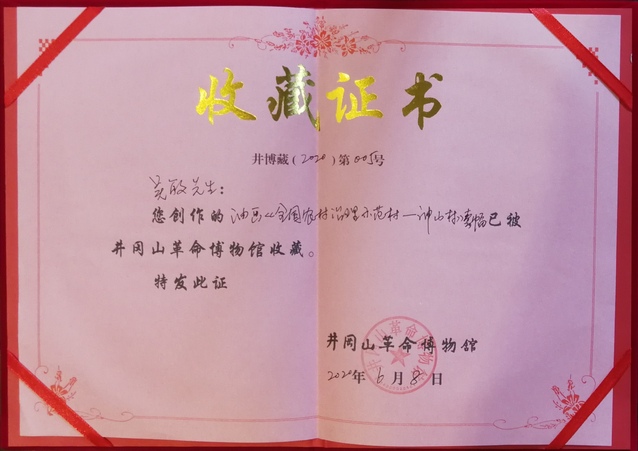 收藏证书
井博藏(2020)第005号
吴敏先生:
您创作的油画《全国农村治理示范村—神山村壹幅已被
井冈山革命博物馆收藏。
特发此证
井冈山革命博物馆
2020年6月8日
井冈山革命博物馆